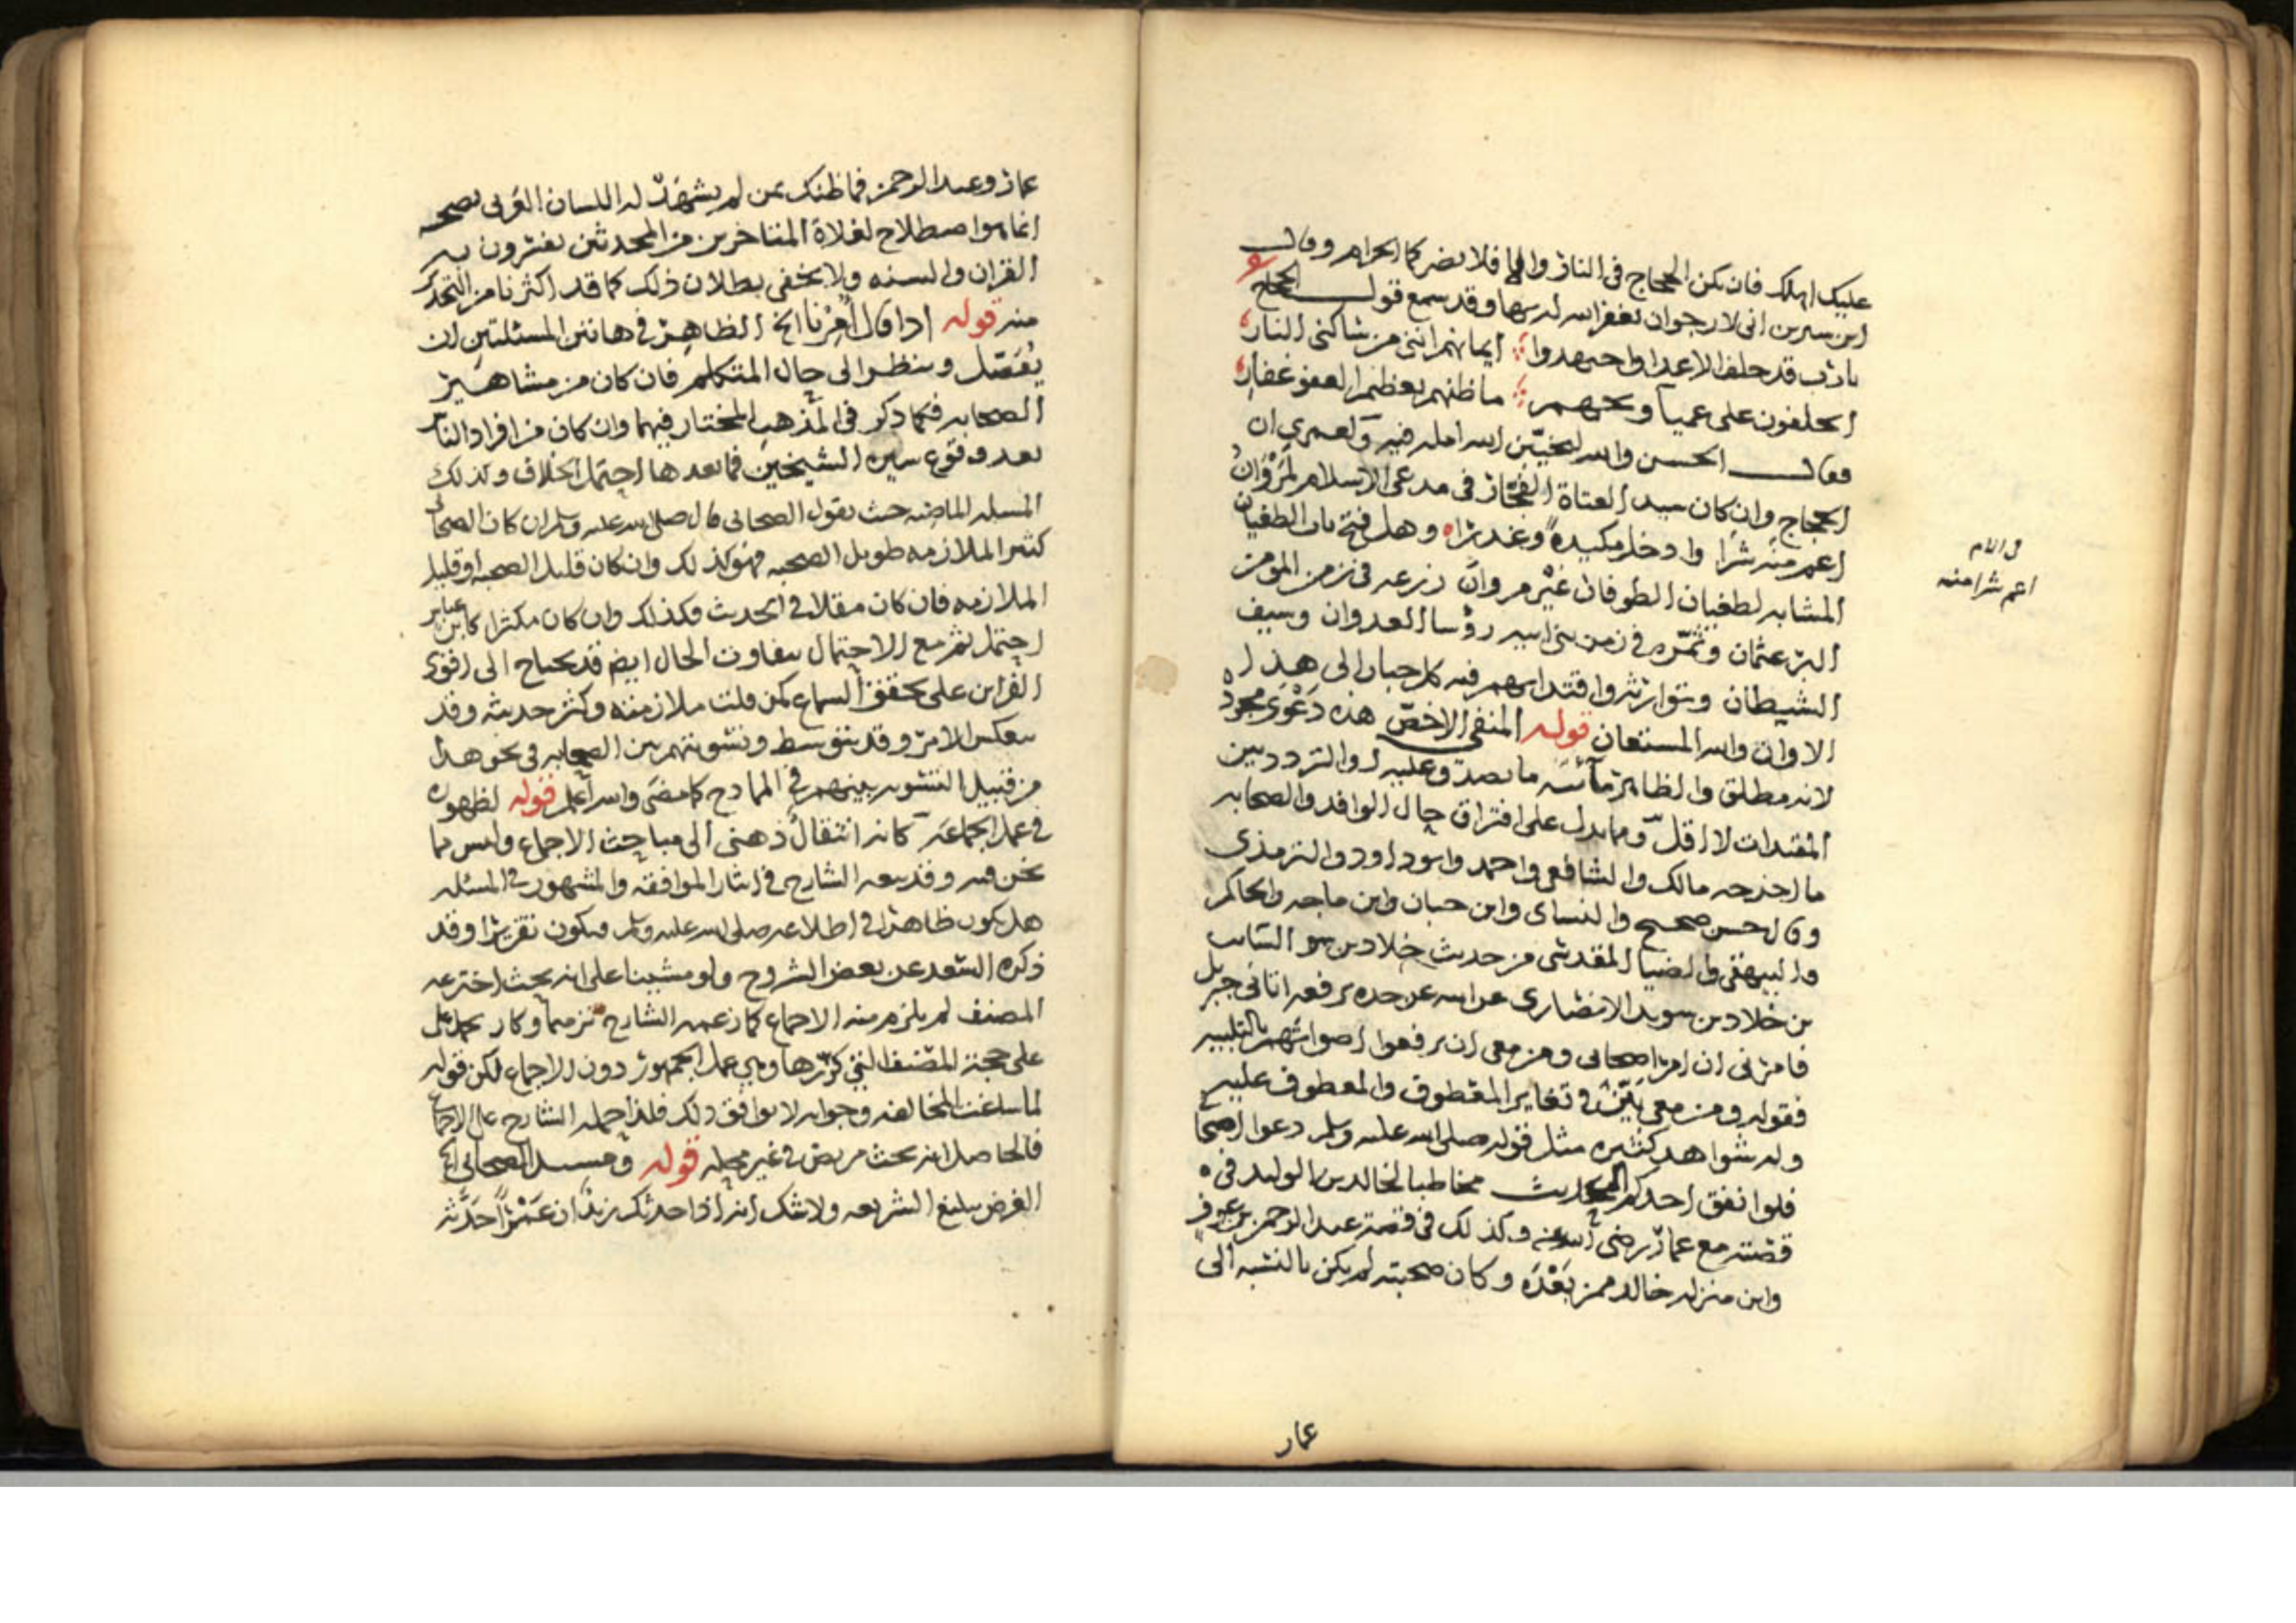 عليك اهلك فان يكن الحجاج في النار والا فلا يضركما الحرام وقال
ابن سيرين اني لارجوان يغفر الله له بها وقد سمع قول الحجاج
يا رب قد حلف الاعدا واجتهدوا ايمانهم انني من ساكني النار
ايحلفون على عميا ويحهم ما ظنهم بعظيم العفو غفار
فقال الحسن والله ليخيبن الله امله فيه ولعمري ان
الحجاج وان كان سيد العتاة الفجار في مدعي الاسلام لمروان
اعم منه شرا وادخل مكيدة وغدرا وهل فتح باب الطغيان
المشابه لطغيان الطوفان غير مروان زرعه في زمن المومن
البر عثمان وثمره في زمن بني اميه رؤسا العدوان وسيف
الشيطان وتوارثه واقتدا بهم فيه كل جبار الى هذا
الاوان والله المستعان قوله المنفي الاخص هذه دعوى مجرده
لانه مطلق والظاهر ما يصدق عليه والتردد بين
المقيدات لا اقل ومما يدل على افتراق حال الوافد والصحابه
ما اخرجه مالك والشافعي واحمد وابو داود والترمذي
وقال حسن صحيح والنساي وابن حبان وابن ماجه والحاكم
والبيهقي والضيا المقدسي من حديث خلاد بن السايب
بن خلاد بن سويد الانصاري عن ابيه عن جده يرفعه اتاني جبريل
فامرني ان امر اصحابي ومن معي ان يرفعوا اصواتهم بالتلبيه
فقوله ومن معي بين في تغاير المعطوف والمعطوف عليه
وله شواهد كثيره مثل قوله صلى الله عليه وسلم دعوا اصحابي
فلو انفق احدكم الحديث مخاطبا لخالد بن الوليد في
قصته مع عمار رضي الله عنه وكذلك في قصة عبد الرحمن بن عوف
واين منزله خالد ممن بعده وكان صحبته لم يكن بالنسبه الى
في الام
اعم شرا منه
عمار
عمار وعبد الرحمن فما ظنك بمن لم يشهد له اللسان العربي بصحبه
انما هو اصطلاح لغلاة المتاخرين من المحدثين يفسرون به
القران والسنه ولا يخفى بطلان ذلك كما قد اكثرنا من التحذير
منه قوله اذا قال امرنا الخ الظاهر في هاتين المسئلتين ان
يفصل وينظر الى حال المتكلم فان كان من مشاهير
الصحابه فكما ذكر في المذهب المختار فيهما وان كان من افراد الناس
بعد وقوع سيره الشيخين فما بعدها احتمل الخلاف وكذلك
المسله الماضيه حيث يقول الصحابي قال صلى الله عليه وسلم ان كان الصحابي
كثير الملازمه طويل الصحبه فهو كذلك وان كان قليل الصحبه او قليل
الملازمه فان كان مقلا في الحديث فكذلك وان كان مكثرا كابن عباس
احتمل ثم مع الاحتمال يتفاوت الحال ايضا قد يحتاج الى اقوى
القراين على تحقق السماع كمن قلت ملازمته وكثر حديثه وقد
ينعكس الامر وقد يتوسط وتسويتهم بين الصحابه في نحو هذا
من قبيل التسويه بينهم في الممادح كما مضى والله اعلم قوله لظهوره
في عمل الجماعه كانه انتقال ذهني الى مباحث الاجماع وليس مما
نحن فيه وقد تبعه الشارح في ايثار الموافقه والمشهور في المسله
هل يكون ظاهرا في اطلاعه صلى الله عليه وسلم فيكون تقريرا وقد
ذكره السعد عن بعض الشروح ولو مشينا على انه بحث اخترعه
المصنف لم يلزم منه الاجماع كما زعمه الشارح وكان يحمل على
على حجة المصنف التي كررها وهي عمل الجمهور دون الاجماع لكن قوله
لما ساغت المخالفه وجوابه لا يوافق ذلك فلذا حمله الشارح على الاجماع
فالحاصل انه بحث مريض في غير محله قوله ومسند الصحابي الخ
الغرض تبليغ الشريعه ولا شك انه اذا حدثك زيد ان عمرا حدثه